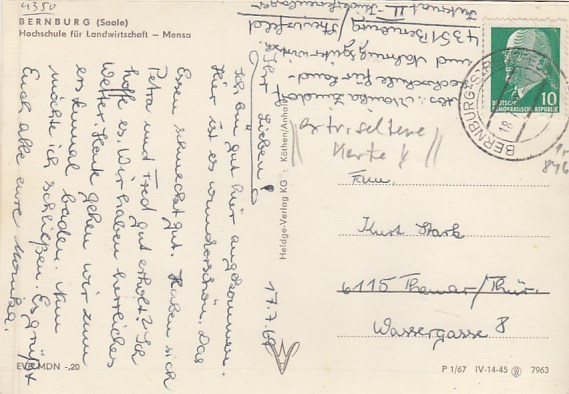 4350
BERNBURG (Saale)
Hochschule für Landwirtschaft — Mensa
17.7.67
Ihr Lieben!
Ich bin gut hier angekommen.
Hier ist es wunderschön. Das
Essen schmeckt gut. Haben sich
Petra und Fred gut erholt? Ich
hoffe es. Wir haben herrliches
Wetter. Heute gehen wir zum
ersten mal baden. Nun
möchte ich schließen. Es grüßt
Euch alle eure Monika.
EVP MDN -,20
Heldge-Verlag KG Köthen/Anhalt
Abs. Monika
Hochschule für Land-
und Nahrungsgüterwirt.
4351 Bernburg/Strenzfeld
Internat II
extra seltene
Marke
DEUTSCHE
DEMOKRATISCHE REPUBLIK
10
BERNBURG
18
Fam.
Kurt Stark
6115 Themar/Thür.
Wassergasse 8
P 1/67 IV-14-45 7963